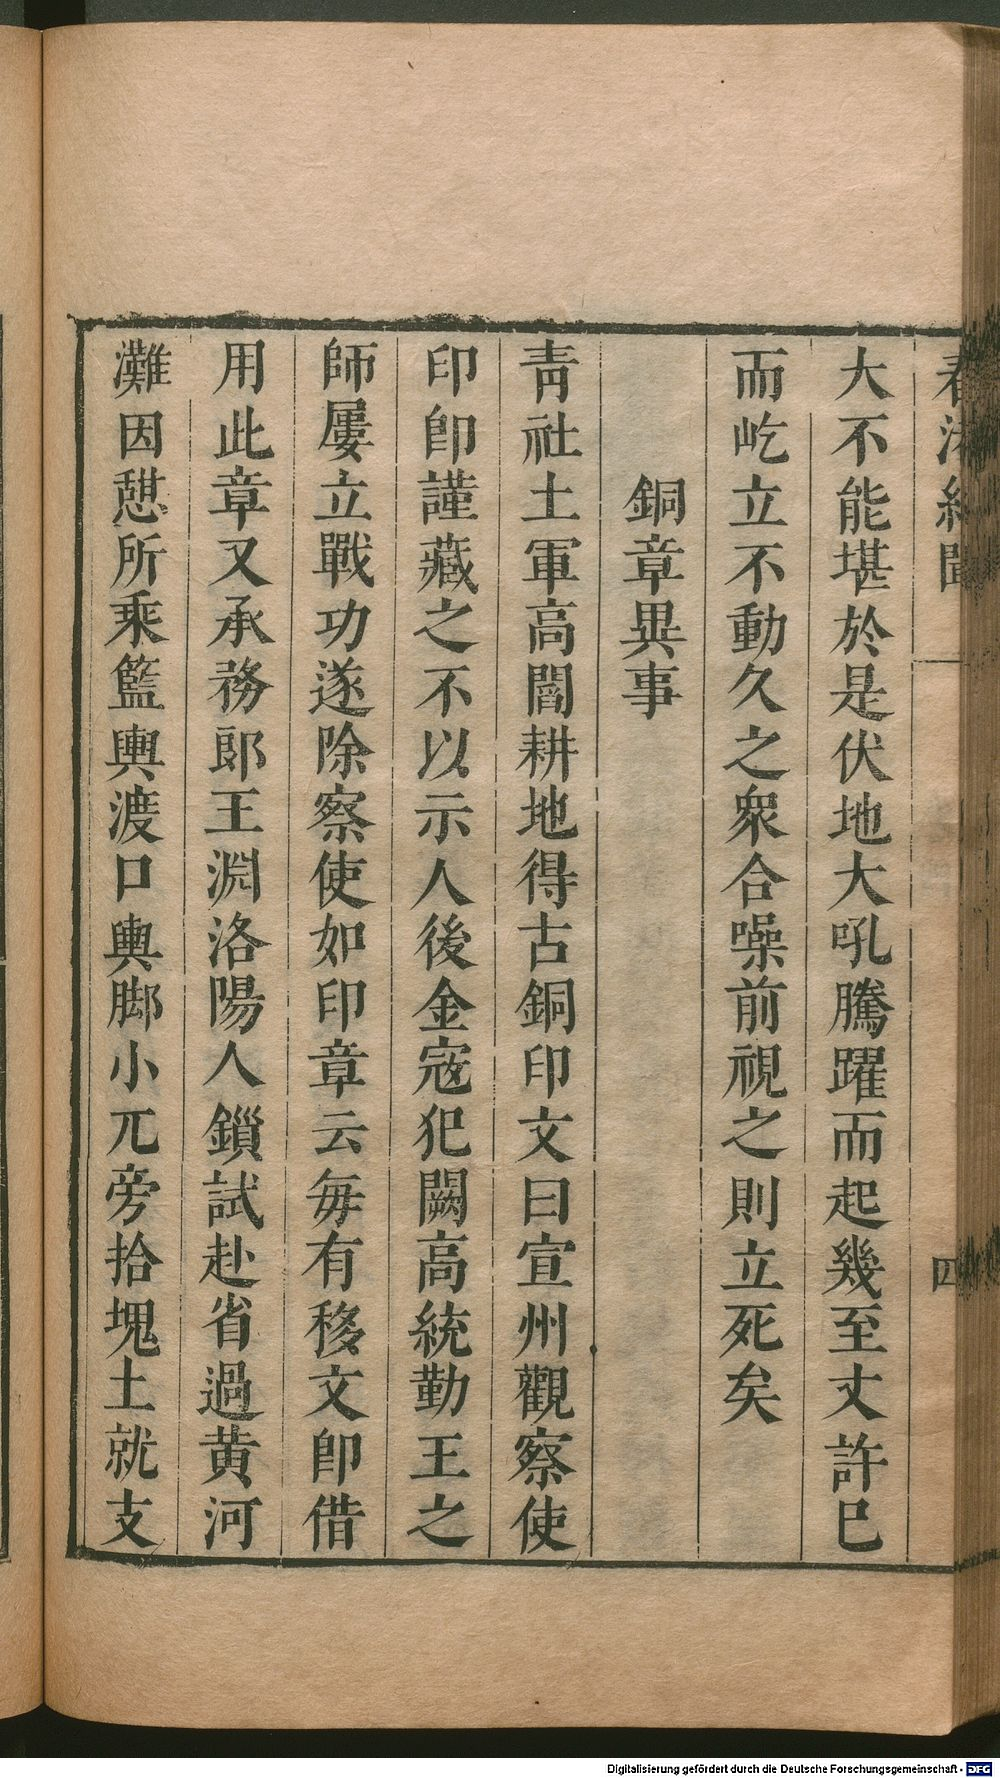 春渚紀聞 四
大不能堪於是伏地大吼騰躍而起幾至丈許巳
而屹立不動久之衆合噪前視之則立死矣
銅章異事
靑社土軍高閻耕地得古銅印文曰宣州觀察使
印卽謹藏之不以示人後金寇犯闕高統勤王之
師屢立戰功遂除察使如印章云每有移文卽借
用此章又承務郎王淵洛陽人鎻試赴省過黃河
灘因憇所乘籃輿渡口輿脚小兀旁拾塊土就支
Digitalisierung gefördert durch die Deutsche Forschungsgemeinschaft - DFG